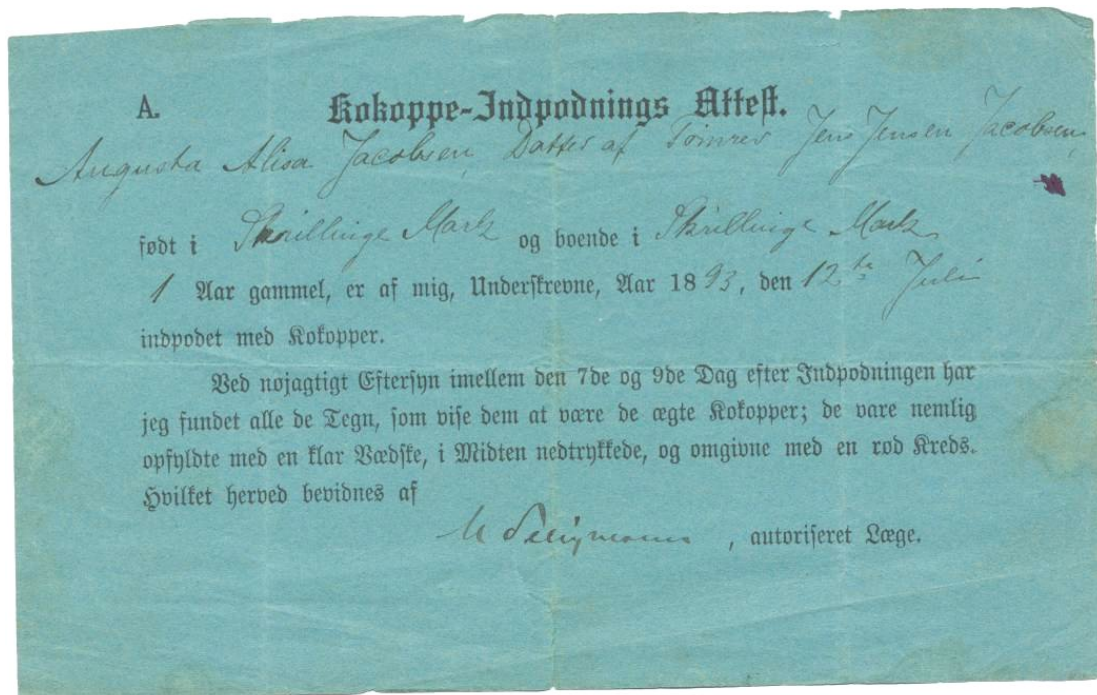 A. Kokoppe-Indpodnings Attest.
Augusta Alisa Jacobsen, Datter af Tømrer Jens Jensen Jacobsen,
født i Skrillinge Mark og boende i Skrillinge Mark
1 Aar gammel, er af mig, Underskrevne, Aar 1893, den 12te Juli
indpodet med Kokopper.
Ved nøjagtigt Eftersyn imellem den 7de og 9de Dag efter Indpodningen har
jeg fundet alle de Tegn, som vise dem at være de ægte Kokopper; de vare nemlig
opfyldte med en klar Vædske, i Midten nedtrykkede, og omgivne med en rød Kreds.
Hvilket herved bevidnes af
, autoriseret Læge.